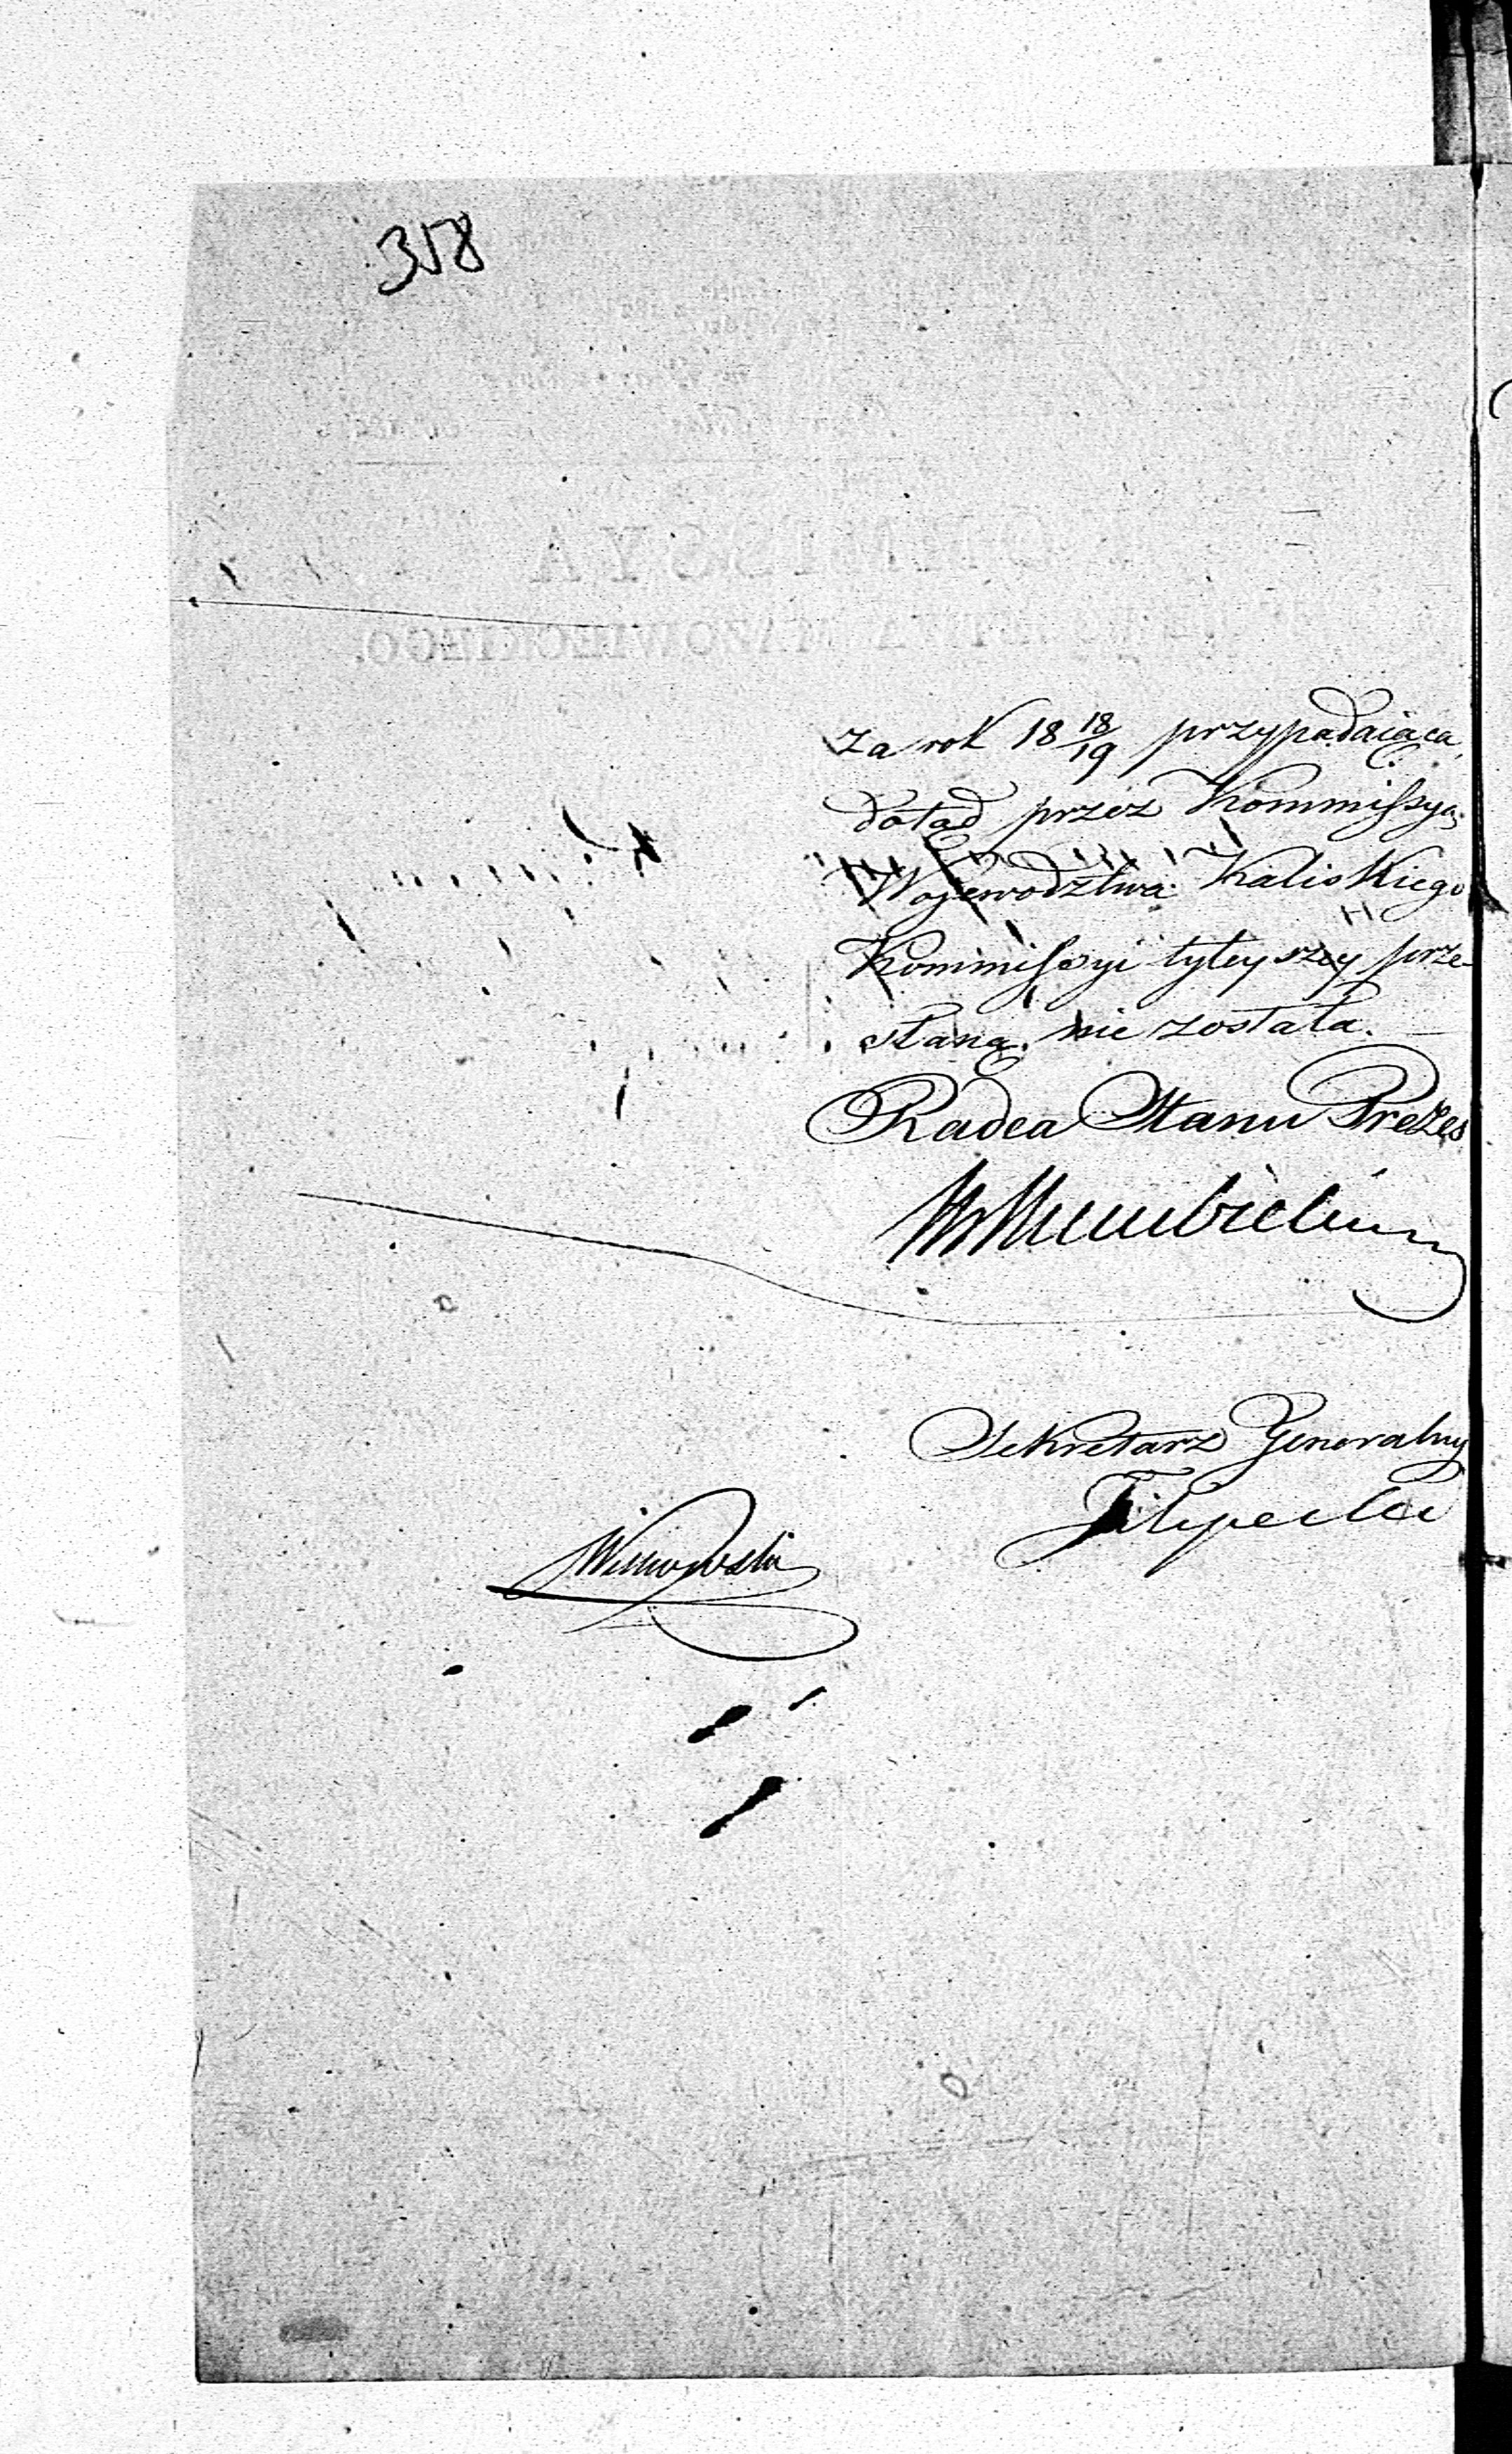 318
za rok 18 18/19 przypadaiąca,
dotąd przez Kommissyą
Województwa Kaliskiego
Kommissyi tyteyszey prze-
słaną nie została.
Radca Stanu Prezes
Sekretarz Generalny
Filipecki